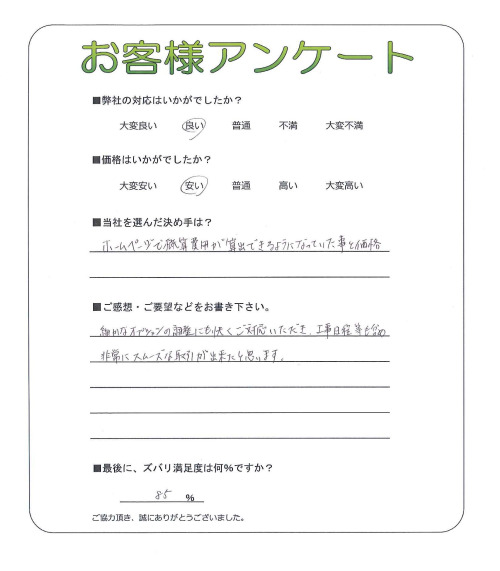 お客様アンケート
■弊社の対応はいかがでしたか？
大変良い　良い　普通　不満　大変不満
■価格はいかがでしたか？
大変安い　安い　普通　高い　大変高い
■当社を選んだ決め手は？
ホームページで概算費用が算出できるようになっていた事と価格
■ご感想・ご要望などをお書き下さい。
細かなオプションの調整にも快くご対応いただき、工事日程等も含め
非常にスムーズな取引が出来たと思います。
■最後に、ズバリ満足度は何％ですか？
85 ％
ご協力頂き、誠にありがとうございました。